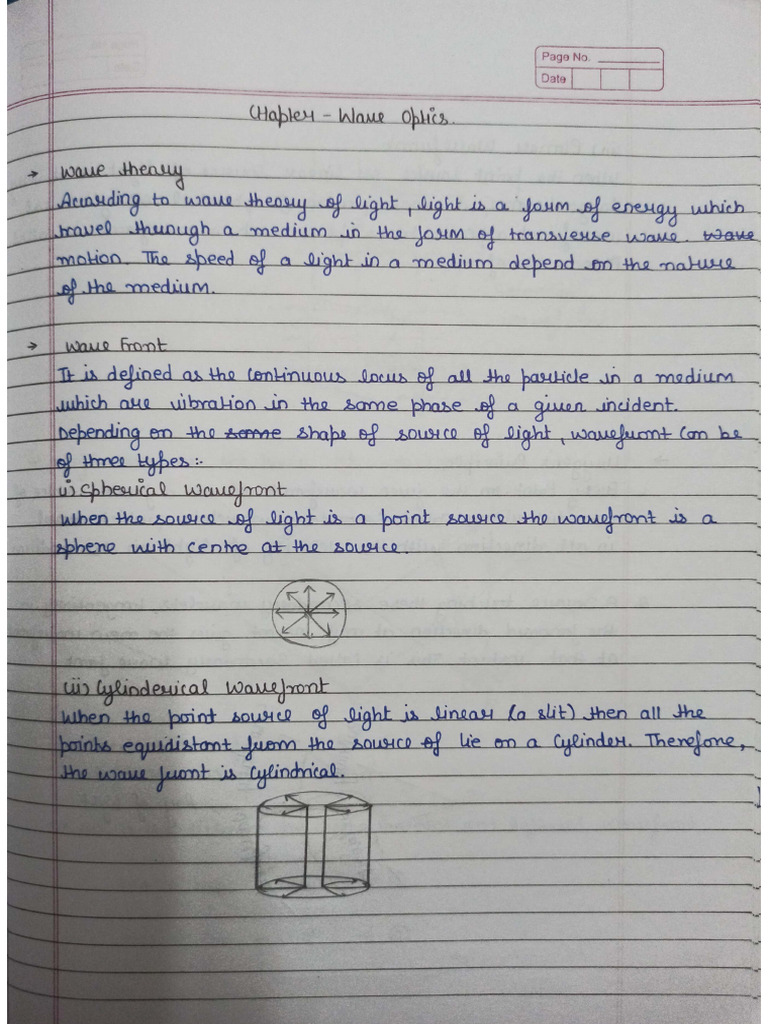 Page No.
Date
Chapter - Wave Optics.
→ Wave theory
According to wave theory of light, light is a form of energy which
travel through a medium in the form of transverse wave. wave
motion. The speed of a light in a medium depend on the nature
of the medium.
→ Wave Front
It is defined as the continuous locus of all the particle in a medium
which are vibration in the same phase of a given incident.
Depending on the same shape of source of light, wavefront can be
of three types:-
(i) Spherical wavefront
When the source of light is a point source the wavefront is a
sphere with centre at the source.
(ii) Cylinderical wavefront
When the point source of light is linear (a slit) then all the
points equidistant from the source of lie on a cylinder. Therefore,
the wave front is cylindrical.